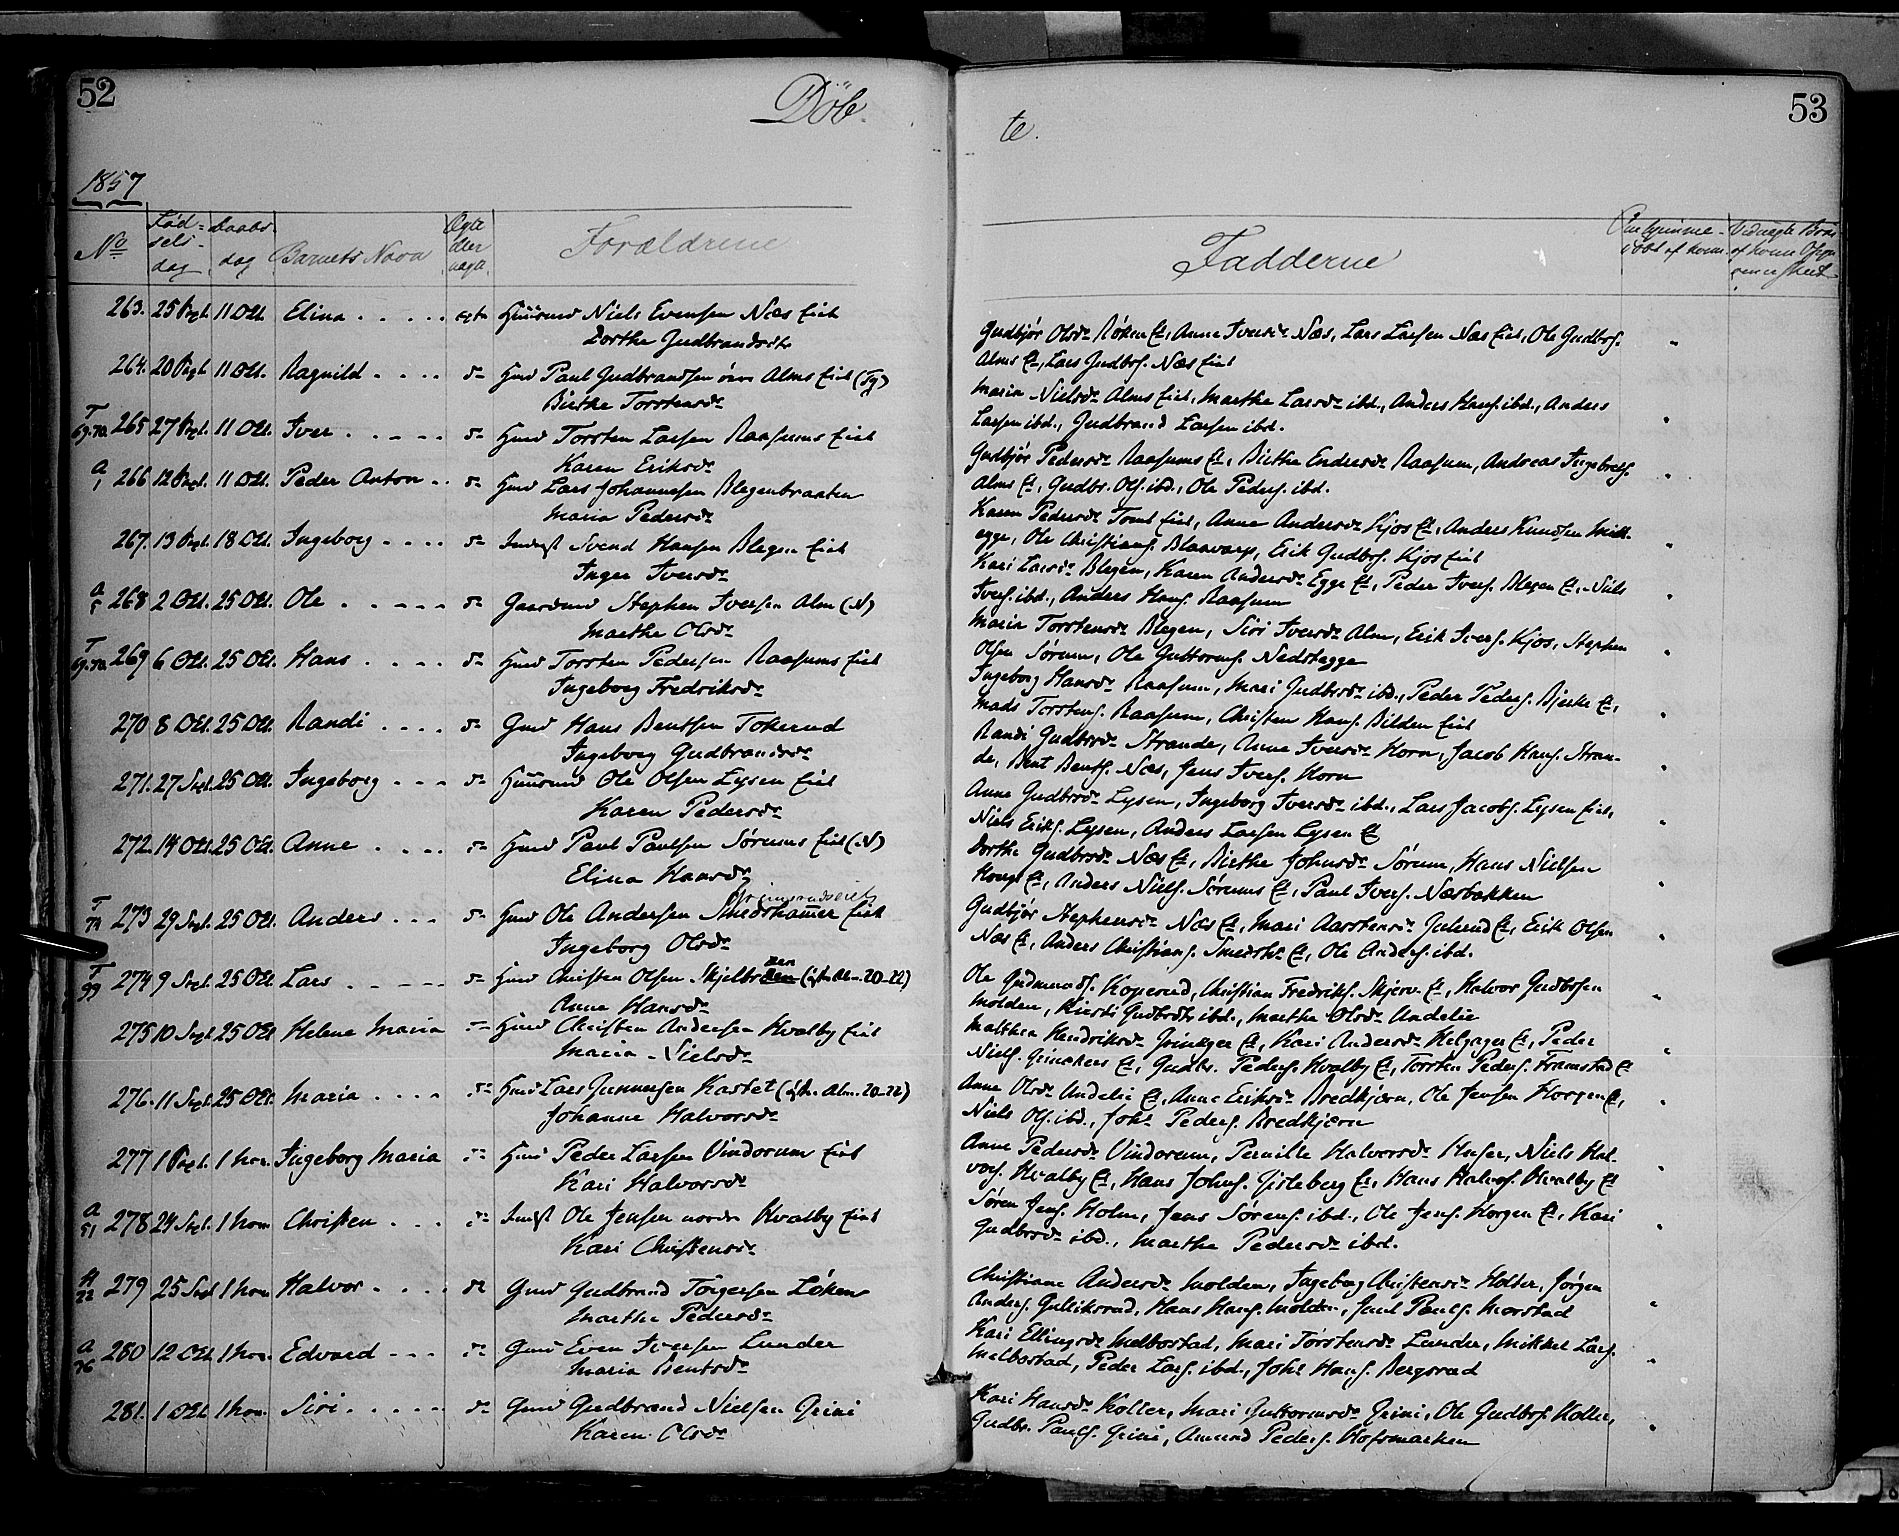 52
Döb
1857
No
Fød-
sels-
dag
Daabs
dag
Barnets Navn
Ægte
eller
uægte
Forældrene
263. 25 Sept. 11 Oct. Elina . . . . . egte Huusmd Niels Evensen Næs Eiet
Dorthe Gudbrandsdtr
264. 20 Sept. 11 Oct. Ragnild . . . . do Hmd Paul Gudbrandsen Alms Eiet
Birthe Torstensdr
T 69.70 265 27 Sept. 11 Oct. Iver . . . . . do Hmd Torsten Larsen Raasums Eiet
Karen Eriksdr
A 1 266 12 Sept. 11 Oct. Peder Anton . . do Hmd Lars Johannesen Blegenbraaten
Maria Pedersdr
267. 13 Sept. 18 Oct. Ingeborg . . . . do Inderst Svend Hansen Blegen Eiet
Inger Iversdr
A 5 268 2 Oct. 25 Oct. Ole . . . . . do Gaardmd Stephen Iversen Alm (N)
Marthe Olsdr
T 69.70 269 6 Oct. 25 Oct. Hans . . . . do Hmd Torsten Pedersen Raasums Eiet
Ingeborg Fredriksdr
270 8 Oct. 25 Oct. Randi . . . . do Gmd Hans Bentsen Tokerud
Ingeborg Gudbrandsdr
271. 27 Sept. 25 Oct. Ingeborg . . . do Huusmd Ole Olsen Lysen Eiet
Karen Pedersdr
272. 14 Oct. 25 Oct. Anne . . . . do Hmd Paul Paulsen Sørums Eiet (N)
Elina Hansdr
T 273 29 Sept. 25 Oct. Anders . . . do Hmd Ole Andersen Smedshamer Eiet
Ingeborg Olsdr
T 99 274 9 Sept. 25 Oct. Lars . . . . . do Hmd Christen Olsen
Anne Hansdr
275 10 Sept. 25 Oct. Helene Maria do Hmd Christen Andersen Hvalby Eiet
Maria Nielsdr
276. 11 Sept. 25 Oct. Maria . . . . do Hmd Lars Gunnersen Kastet
Johanne Halvorsdr
277 1 Sept. 1 Nov. Ingeborg Maria do Hmd Peder Larsen Vindorum Eiet
Kari Halvorsdr
A 51 278 24 Sept. 1 Nov. Christen . . . do Inderst Ole Jensen nordre Hvalby Eiet
Kari Christensdr
H 22 279 25 Sept 1 Nov. Halvor . . . . do Gmd Gudbrand Törgersen Løken
Marthe Pedersdr
A 76 280 12 Oct. 1 Nov. Edvard . . . do Gmd Even Iversen Lunder
Maria Bentsdr
281. 1 Oct. 1 Nov. Siri . . . . . do Gmd Gudbrand Nielsen Grini
Karen Olsdr
53
te.
Fadderne
Gudbjør Olsdr Røken Et, Anne Iversdr Næs, Lars Larsen Næs Eiet, Ole Gudbrs.
Alms Et, Lars Gudbrs. Næs Eiet
Maria Nielsdr Alms Eiet, Marthe Larsdr ibd., Anders Hans. ibd., Anders
Larsen ibd., Gudbrand Larsen ibd.
Gudbjør Pedersdr Raasums Et, Birthe Endresdr Raasum, Andreas Ingebrets.
Alms Et, Gudbr. Ols. ibd., Ole Peders. ibd.
Karen Pedersdr Tomt Eiet, Anne Andersdr Kjos Et, Anders Knudsen
egge, Ole Christians. Blaavarp, Erik Gudbrs. Kjos Eiet
Kari Larsdr Blegen, Karen Andersdr Egge Et, Peder Ivers. Blegen Et, Niels
Ivers. ibd., Anders Hans. Raasum
Maria Torstensdr Blegen, Siri Iversdr Alm, Erik Ivers. Kjos, Stephen
Olsen Sørum, Ole Guttorms. Nedstegge
Ingeborg Hansdr Raasum, Mari Gudbrsdr ibd., Peder Peders. Bjerke Et,
Mads Torstens. Raasum, Christen Hans. Bilden Eiet
Randi Gudbrsdr Strande, Anne Iversdr Horn, Jacob Hans. Stran-
de, Bent Bents. Næs, Jens Ivers. Horn
Anne Gudbrsdr Lysen, Ingeborg Iversdr ibd., Lars Jacobs. Lysen Eiet,
Niels Eriks. Lysen, Anders Larsen Lysen Et
Dorthe Gudbrsdr Næs Et, Birthe Johnsdr Sørum, Hans Nielsen
Et, Anders Niels. Sørums Et, Paul Ivers. Næsbakken
Gudbjør Stephensdr Næs Et, Mari Aarstensdr Et, Erik Olsen
Næs Et, Anders Christians. Smedsh. Et, Ole Anders. ibd.
Ole Gudmunds. Koperud, Christian Fredriks. Skjerv. Et, Halvor Gudbrsen
Molden, Kirsti Gudbrsdtr ibd., Marthe Olsdr Andelie
Malthea Hendriksdr Et, Kari Andersdr Helgager Et, Peder
Niels. Grinakers Et, Gudbr. Peders. Hvalby Et, Torsten Peders. Framstad Et
Anne Olsdr Andelie Et, Anne Eriksdr Bredkjern, Ole Jensen Horgen Et,
Niels Ols. ibd., Joh. Peders. Bredkjern
Anne Pedersdr Vindorum, Pernille Halvorsdr Huser, Niels Hal-
vors. Hvalby Et, Hans Johns. Gisleberg Et, Hans Halvors. Hvalby Et
Søren Jens. Holm, Jens Sørens. ibd., Ole Jens. Horgen Et, Kari
Gudbrsdr ibd., Marthe Pedersdr ibd.
Christiane Andersdr Molden, Ingeborg Christensdr Holter, Jørgen
Anders. Gulliksrud, Hans Hans. Molden, Juul Pauls. Morstad
Kari Ellingsdr Melbostad, Mari Torstensdr Lunder, Mikkel Lars.
Melbostad, Peder Lars. ibd., Johs Hans. Bergsrud
Kari Hansdr Koller, Mari Guttormsdr Grini, Ole Gudbrs. Koller,
Gudbr. Pauls. Grini, Amund Peders. Hofsmarken